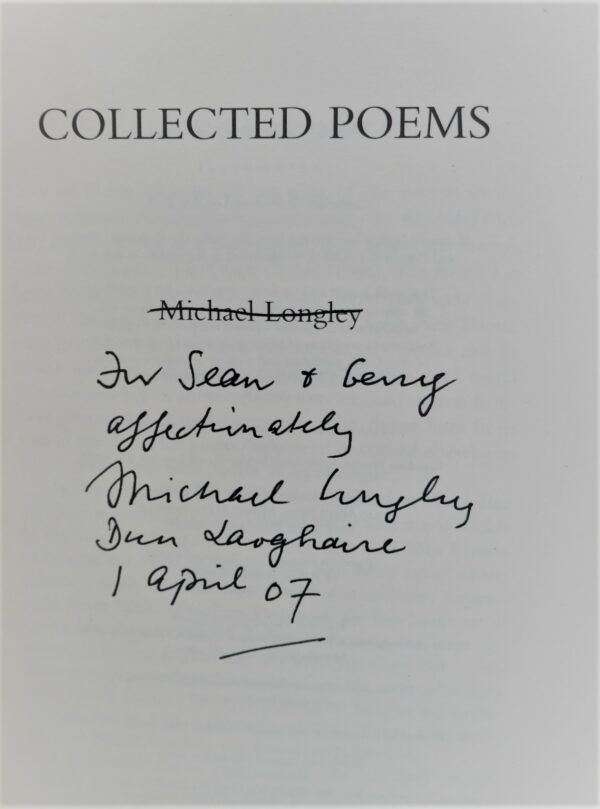 COLLECTED POEMS
Michael Longley
For Sean & Gerry
affectionately
Michael Longley
Dun Laoghaire
1 April 07